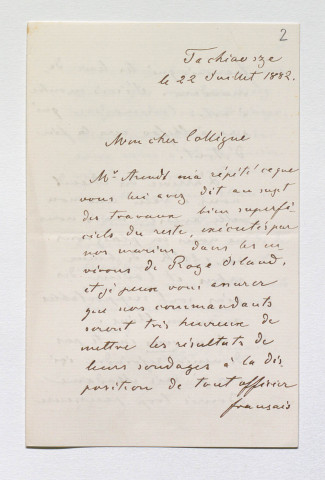 2
Tachiaosze
le 22 Juillet 1882.
Mon cher Collègue
Mr. Arendt m'a répété ce que
vous lui avez dit au sujet
des travaux bien superfi-
ciels du reste, exécutés par
nos marins dans les en
virons de Roze Island,
et je peux vous assurer
que nos commandants
seront très heureux de
mettre les résultats de
leurs sondages à la dis-
position de tout officier
français